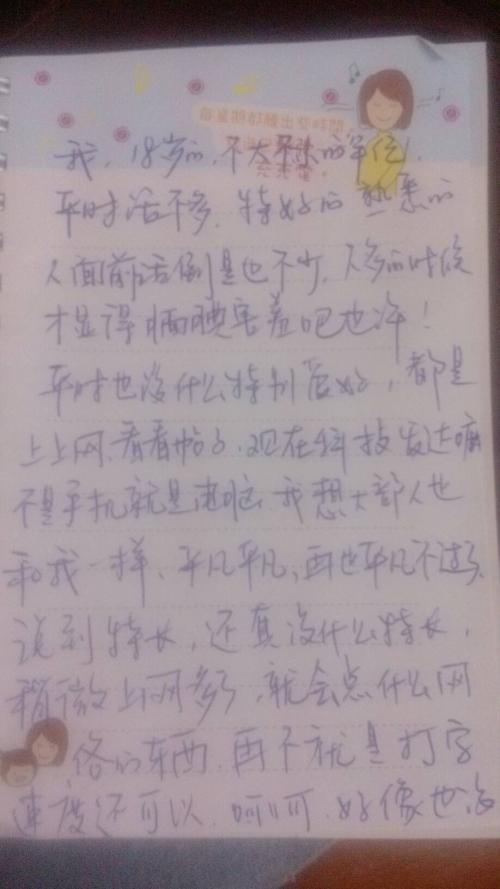 每星期都騰出些時間
我，18岁的，不太的单位，
平时话不多，特好的熟悉的
人面前话倒是也不少，人多的时候
才显得腼腆害羞吧也许！
平时也没什么特别爱好，都是
上上网、看看帖子，现在科技发达嘛
不是手机就是电脑，我想大部人也
和我一样，平凡平凡，再也平凡不过了，
说到特长，还真没什么特长，
稍微上网多了，就会点什么网
络的东西，再不就是打字
速度还可以，呵呵，好像也没